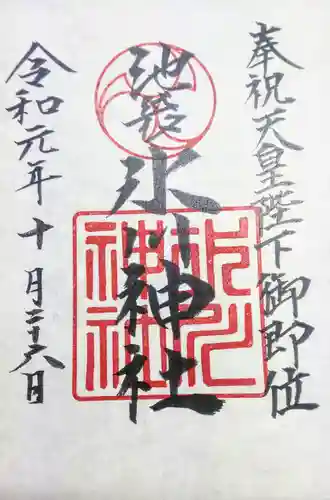 奉祝天皇陛下御即位
池袋氷川神社
令和元年十月二十六日